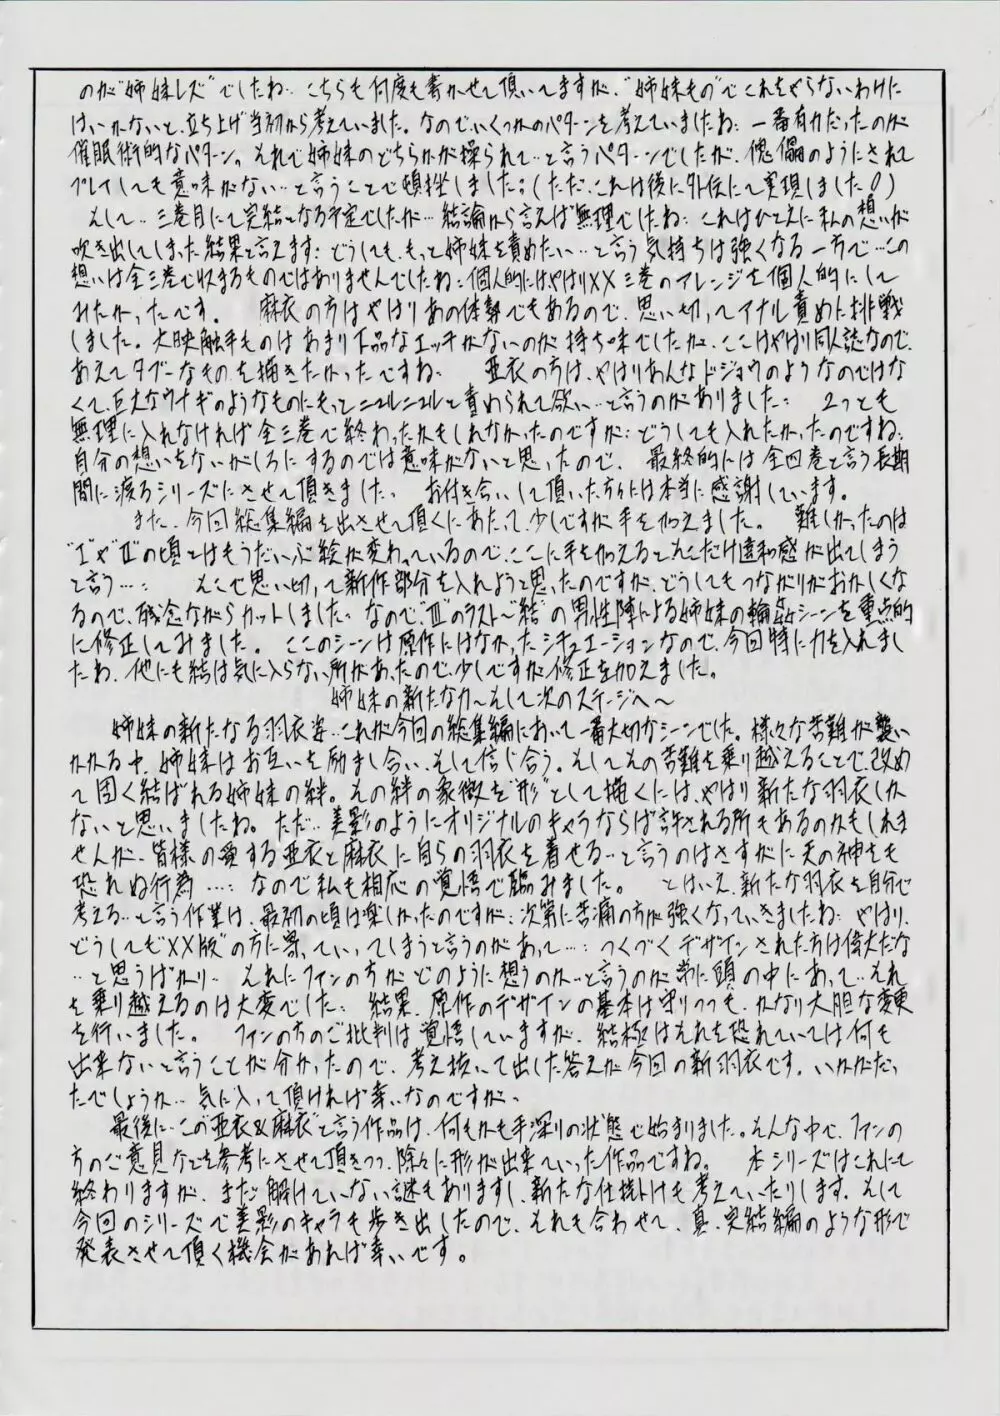 のが“姉妹レズ”でしたね… こちらも何度も書かせて頂いてますが、“姉妹もの”でこれをやらないわけに
はいかないと、立ち上げ当初から考えていました。なのでいくつかのパターンを考えていましたね… 一番有力だったのが
催眠術的なパターン。それで姉妹のどちらかが操られて…と言うパターンでしたが、傀儡のようにされて
プレイしても意味がない…と言うことで頓挫しました…(ただ、これは後に外伝にて実現しました!)
そして…三巻目にて完結となる予定でしたが…結論から言えば無理でしたね… これはひとえに私の想いが
吹き出してしまった結果と言えます… どうしても、もっと姉妹を責めたい…と言う気持ちは強くなる一方で…この
想いは全三巻で収まるものではありませんでしたね… 個人的にはやはりXX三巻のアレンジを個人的にして
みたかったです。 麻衣の方はやはりあの体勢でもあるので、思い切ってアナル責めに挑戦
しました。大映触手ものはあまり下品なエッチがないのが持ち味でしたが、ここはやはり同人誌なので、
あえてタブーなものを描きたかったですね… 亜衣の方は、やはりあんなドジョウのようなのではな
くて、巨大なウナギのようなものにもっとニュルニュルと責められて欲しい…と言うのがありました… 2つとも
無理に入れなければ全三巻で終わったかもしれなかったのですが… どうしても入れたかったのですね…
自分の想いをないがしろにするのでは意味がないと思ったので、最終的には全四巻と言う長期
間に渡るシリーズにさせて頂きました。 お付き合いして頂いた方々には本当に感謝しています。
また、今回総集編を出させて頂くにあたって、少しですが手を加えました。 難しかったのは
“Ⅰ”や“Ⅱ”の頃とはもうだいぶ絵が変わっているので、ここに手を加えるとそこだけ違和感が出てしまう
と言う…… そこで思い切って新作部分を入れようと思ったのですが、どうしてもつながりがおかしくな
るので、残念ながらカットしました… なので“Ⅲのラスト〜結”の男性陣による姉妹の輪姦シーンを重点的
に修正してみました。 ここのシーンは原作にはなかったシチュエーションなので、今回特に力を入れまし
たね。他にも結は気に入らない所があったので、少しですが修正を加えました。
姉妹の新たな力〜そして次のステージへ〜
姉妹の新たなる羽衣姿…これが今回の総集編において一番大切なシーンでした。様々な苦難が襲い
かかる中、姉妹はお互いを励まし合い、そして信じ合う。そしてその苦難を乗り越えることで、改め
て固く結ばれる姉妹の絆。その絆の象徴を“形”として描くには、やはり新たな羽衣しか
ないと思いましたね。ただ…美影のようにオリジナルのキャラならば許される所もあるのかもしれま
せんが、皆様の愛する亜衣と麻衣に自らの羽衣を着せる…と言うのはさすがに天の神をも
恐れぬ行為…… なので私も相応の覚悟で臨みました。 とはいえ、新たな羽衣を自分で
考える…と言う作業は、最初の頃は楽しかったのですが… 次第に苦痛の方が強くなっていきましたね… やはり、
どうしても“XX版”の方に寄っていってしまうと言うのがあって…… つくづくデザインされた方は偉大だな
…と思うばかり… それにファンの方がどのように想うのか…と言うのが常に頭の中にあって…それ
を乗り越えるのは大変でした… 結果、原作のデザインの基本は守りつつも、かなり大胆な変更
を行いました。 ファンの方のご批判は覚悟していますが、結極はそれを恐れていては何も
出来ないと言うことが分かったので、考え抜いて出した答えが今回の新羽衣です。いかがだっ
たでしょうか… 気に入って頂ければ幸いなのですが…
最後に…この“亜衣&麻衣”と言う作品は、何もかも手深りの状態で始まりました。そんな中で、ファンの
方のご意見などを参考にさせて頂きつつ、除々に形が出来ていった作品ですね。 本シリーズはこれにて
終わりますが、まだ解けていない謎もありますし、新たな仕掛けも考えていたりします。そして
今回のシリーズで美影のキャラも歩き出したので、それも合わせて、真・完結編のような形で
発表させて頂く機会があれば幸いです。